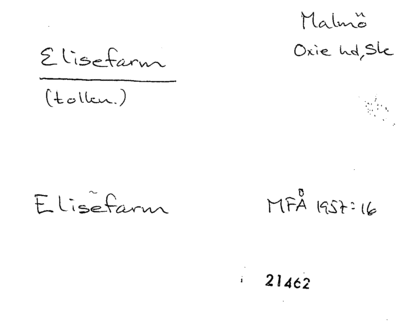 Malmö
Oxie hd, Sk
Elisefarm
(tolkn.)
Elisefarm
MFÅ 1957:16
21462